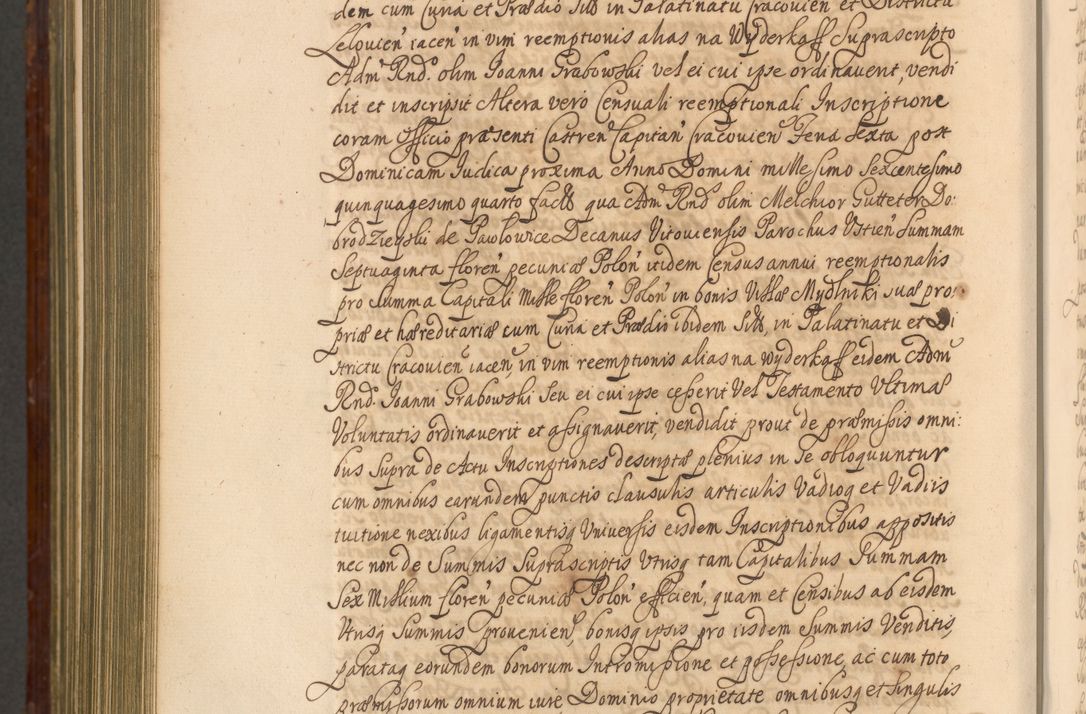 dem cum Curia et Prædio Sitt in Palatinatu Cracovien et Districtu
Lelovien̄ iacen̄ in vim reemptionis alias na Wyderkaff Suprascripto
Adm̄ Rnd. olim Joanni Grabowski vel ei cui ipse ordinaverit, vendi
dit et inscripsit Altera vero Censuali reemptionali Inscriptione
coram Officio præsenti Castren̄ Capitan̄ Cracovien̄ Feria Sexta post
Dominicam Iudica proxima Anno Domini millesimo Sexcentesimo
quinquagesimo quarto facta qua Adm̄ Rnd olim Melchior Gutteter Do:
brodzieyski de Pawlowice Decanus Vitoviensis Parochus Vstien̄ Summam
Septuaginta floren̄ pecuniæ Polon̄ itidem Census annui reemptionalis
pro Summa Capitali Mille floren̄ Polon̄ in bonis Villæ Mydlniki suæ pro:
priæ et hæreditariæ cum Curia et Prædio ibidem Sitt, in Palatinatu et Di
strictu Cracovien̄ iacen̄, in vim reemptionis alias na wyderkaff eidem Adm̄
Rnd. Joanni Grabowski Seu ei cui ipse cesserit Vel Testamento Vltimæ
Voluntatis ordinaverit et assignaverit, vendidit prout de præmissis omni:
bus Supra de Actu Inscriptiones descriptæ plenius in Se obloquuntur
cum omnibus earundem punctis clausulis articulis Vadioq et Vadiis
tuitione nexibus ligamentisq Universis eisdem Inscriptionibus appositis
nec non de Summis Suprascriptis Vtrisq tam Capitalibus Summam
Sex Millium floren̄ pecuniæ Polon̄ efficien̄, quam et Censibus ab eisdem
Vtrisq Summis provenien̄, bonisq ipsis pro iisdem Summis Venditis,
parataq eorundem bonorum Intromissione et possessione, ac cum toto
præmissorum omnium iure Dominio proprietate omnibusq et Singulis